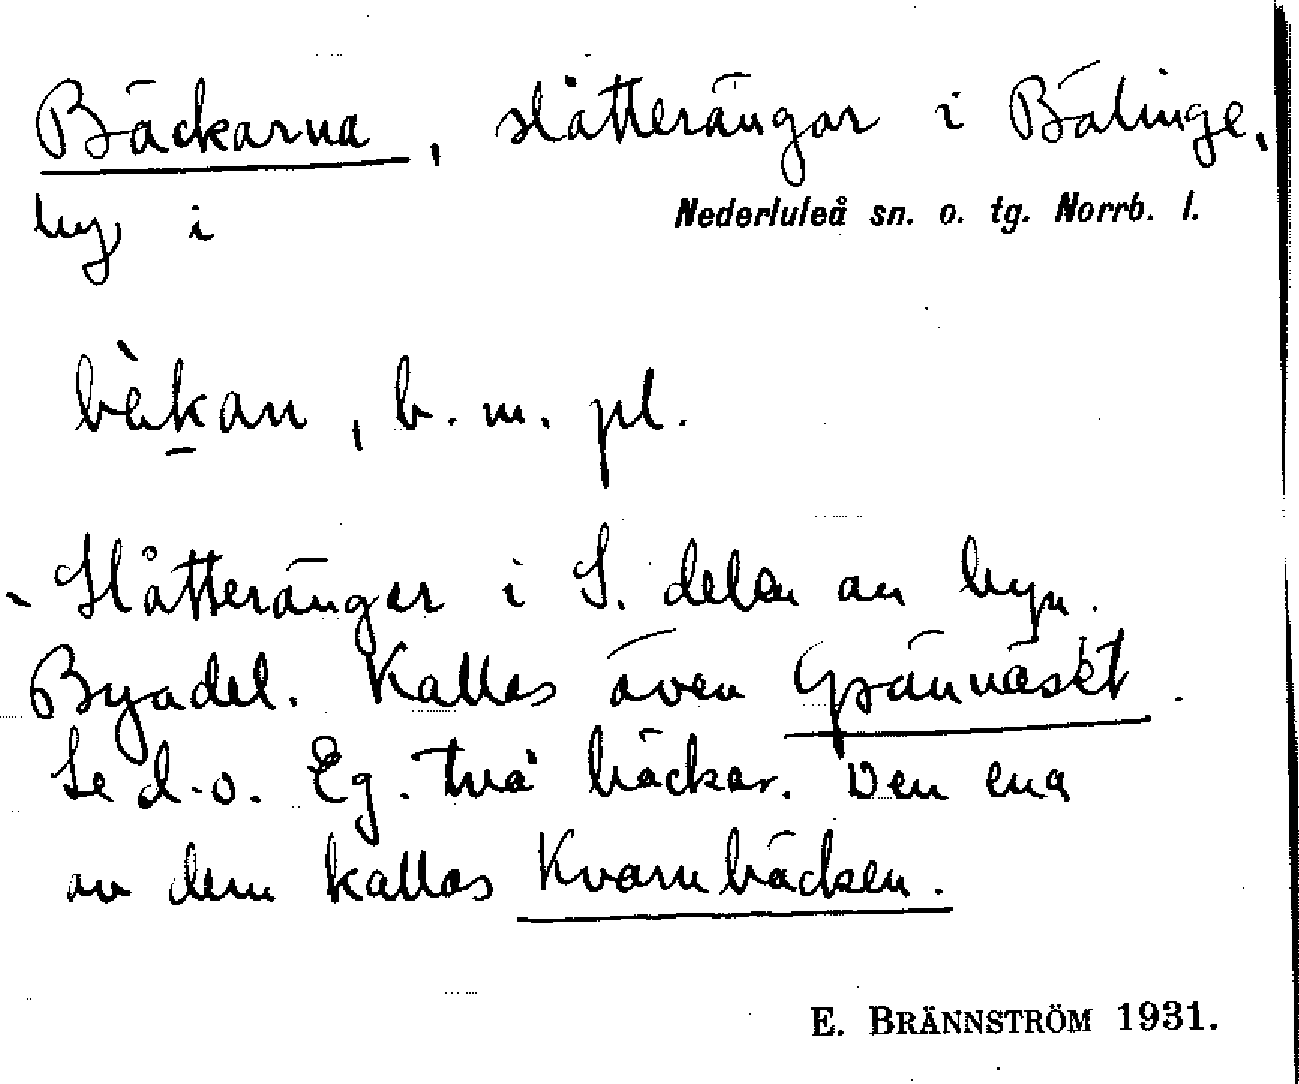 Bäckarna, slåtterängar i Bälinge,
by i Nederluleå sn. o. tg. Norrb. l.
bèkan, b. m. pl.
Slåtterängar i S. delen av byn.
Byadel. Kallas även Grännäskt.
Se d.o. Eg. två bäckar. Den ena
av dem kallas Kvarnbäcken.
E. BRÄNNSTRÖM 1931.